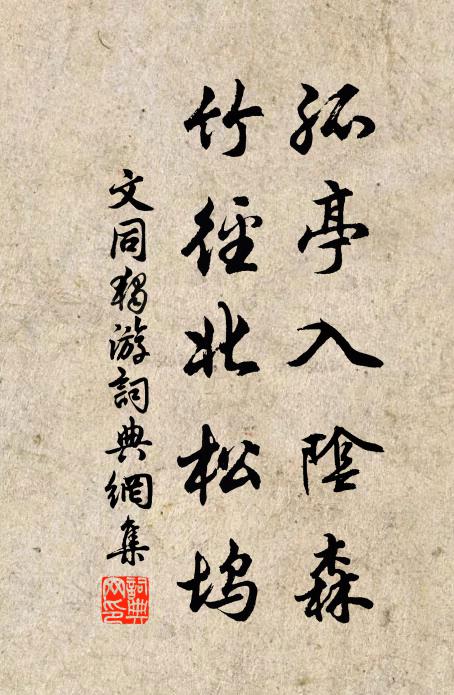 孤亭入陰森
竹徑北松塢
文同獨游詞典網集
詞典网印